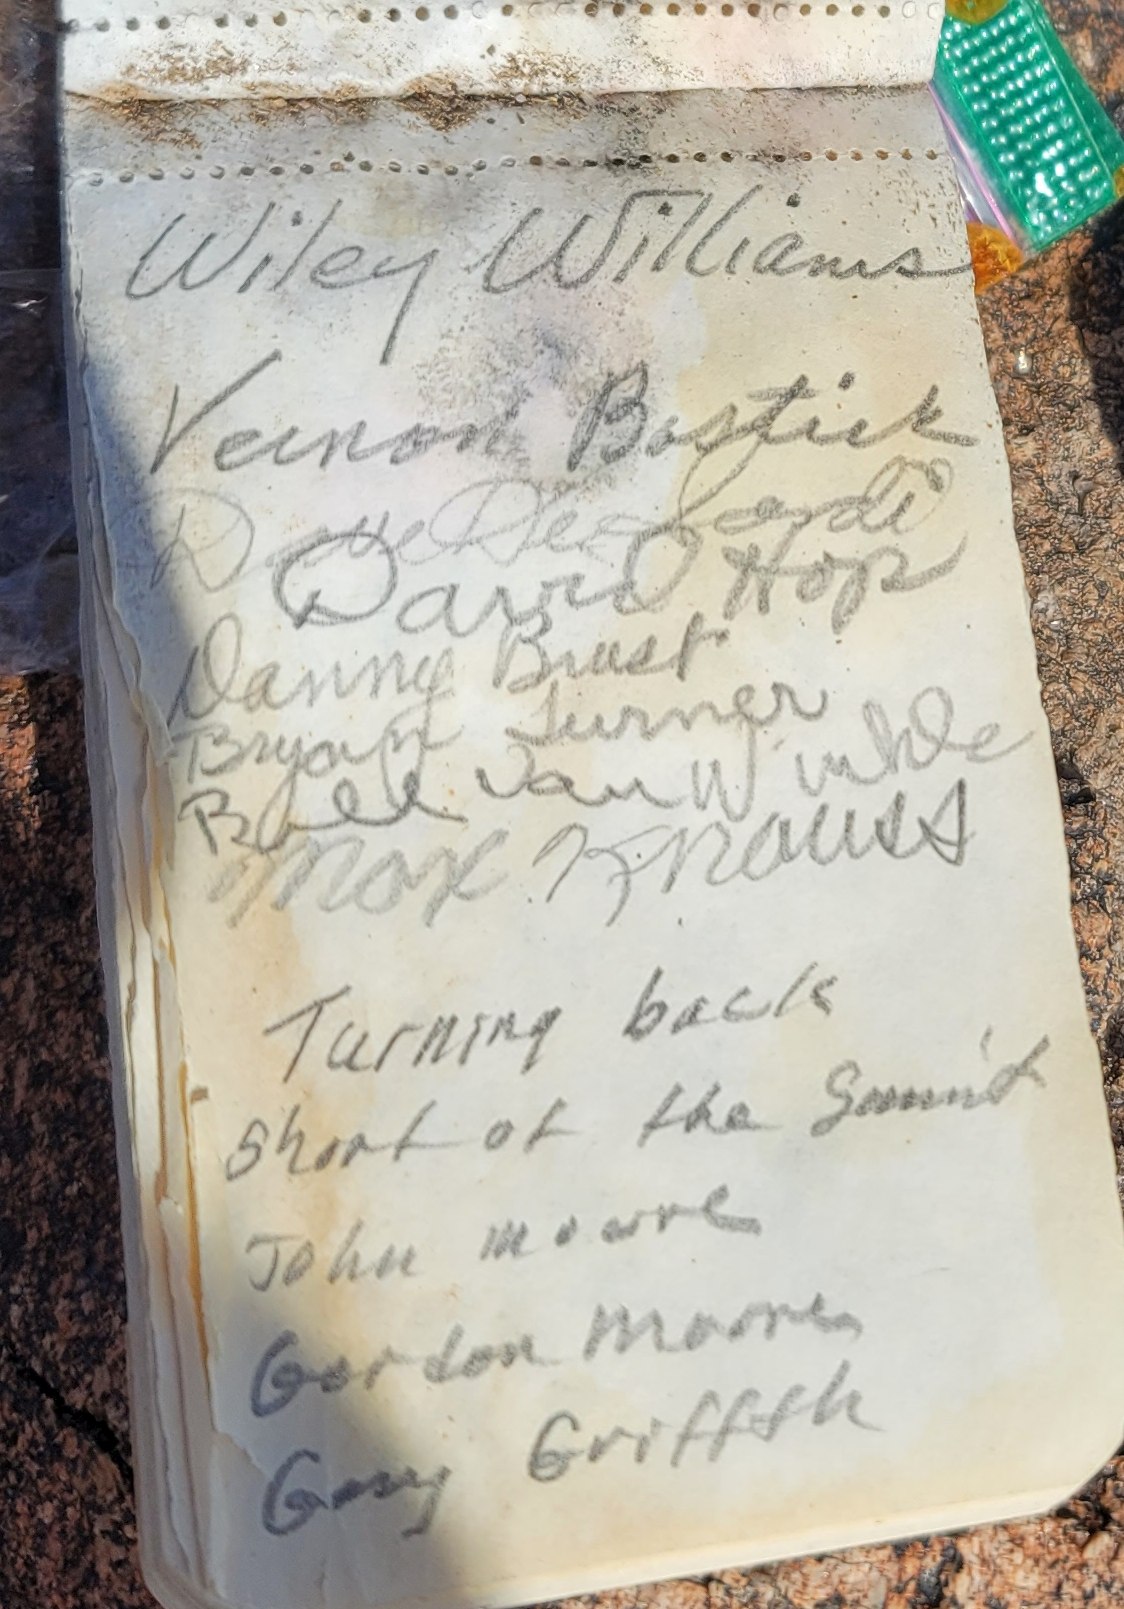 Wiley Williams
Vernon Bostick
Dave
Darrel Hop
Danny Brust
Bryan Turner
Bill Van Winkle
Max Krauss
Turning back
short of the Summit
John Moore
Gordon Moore
Gary Griffth